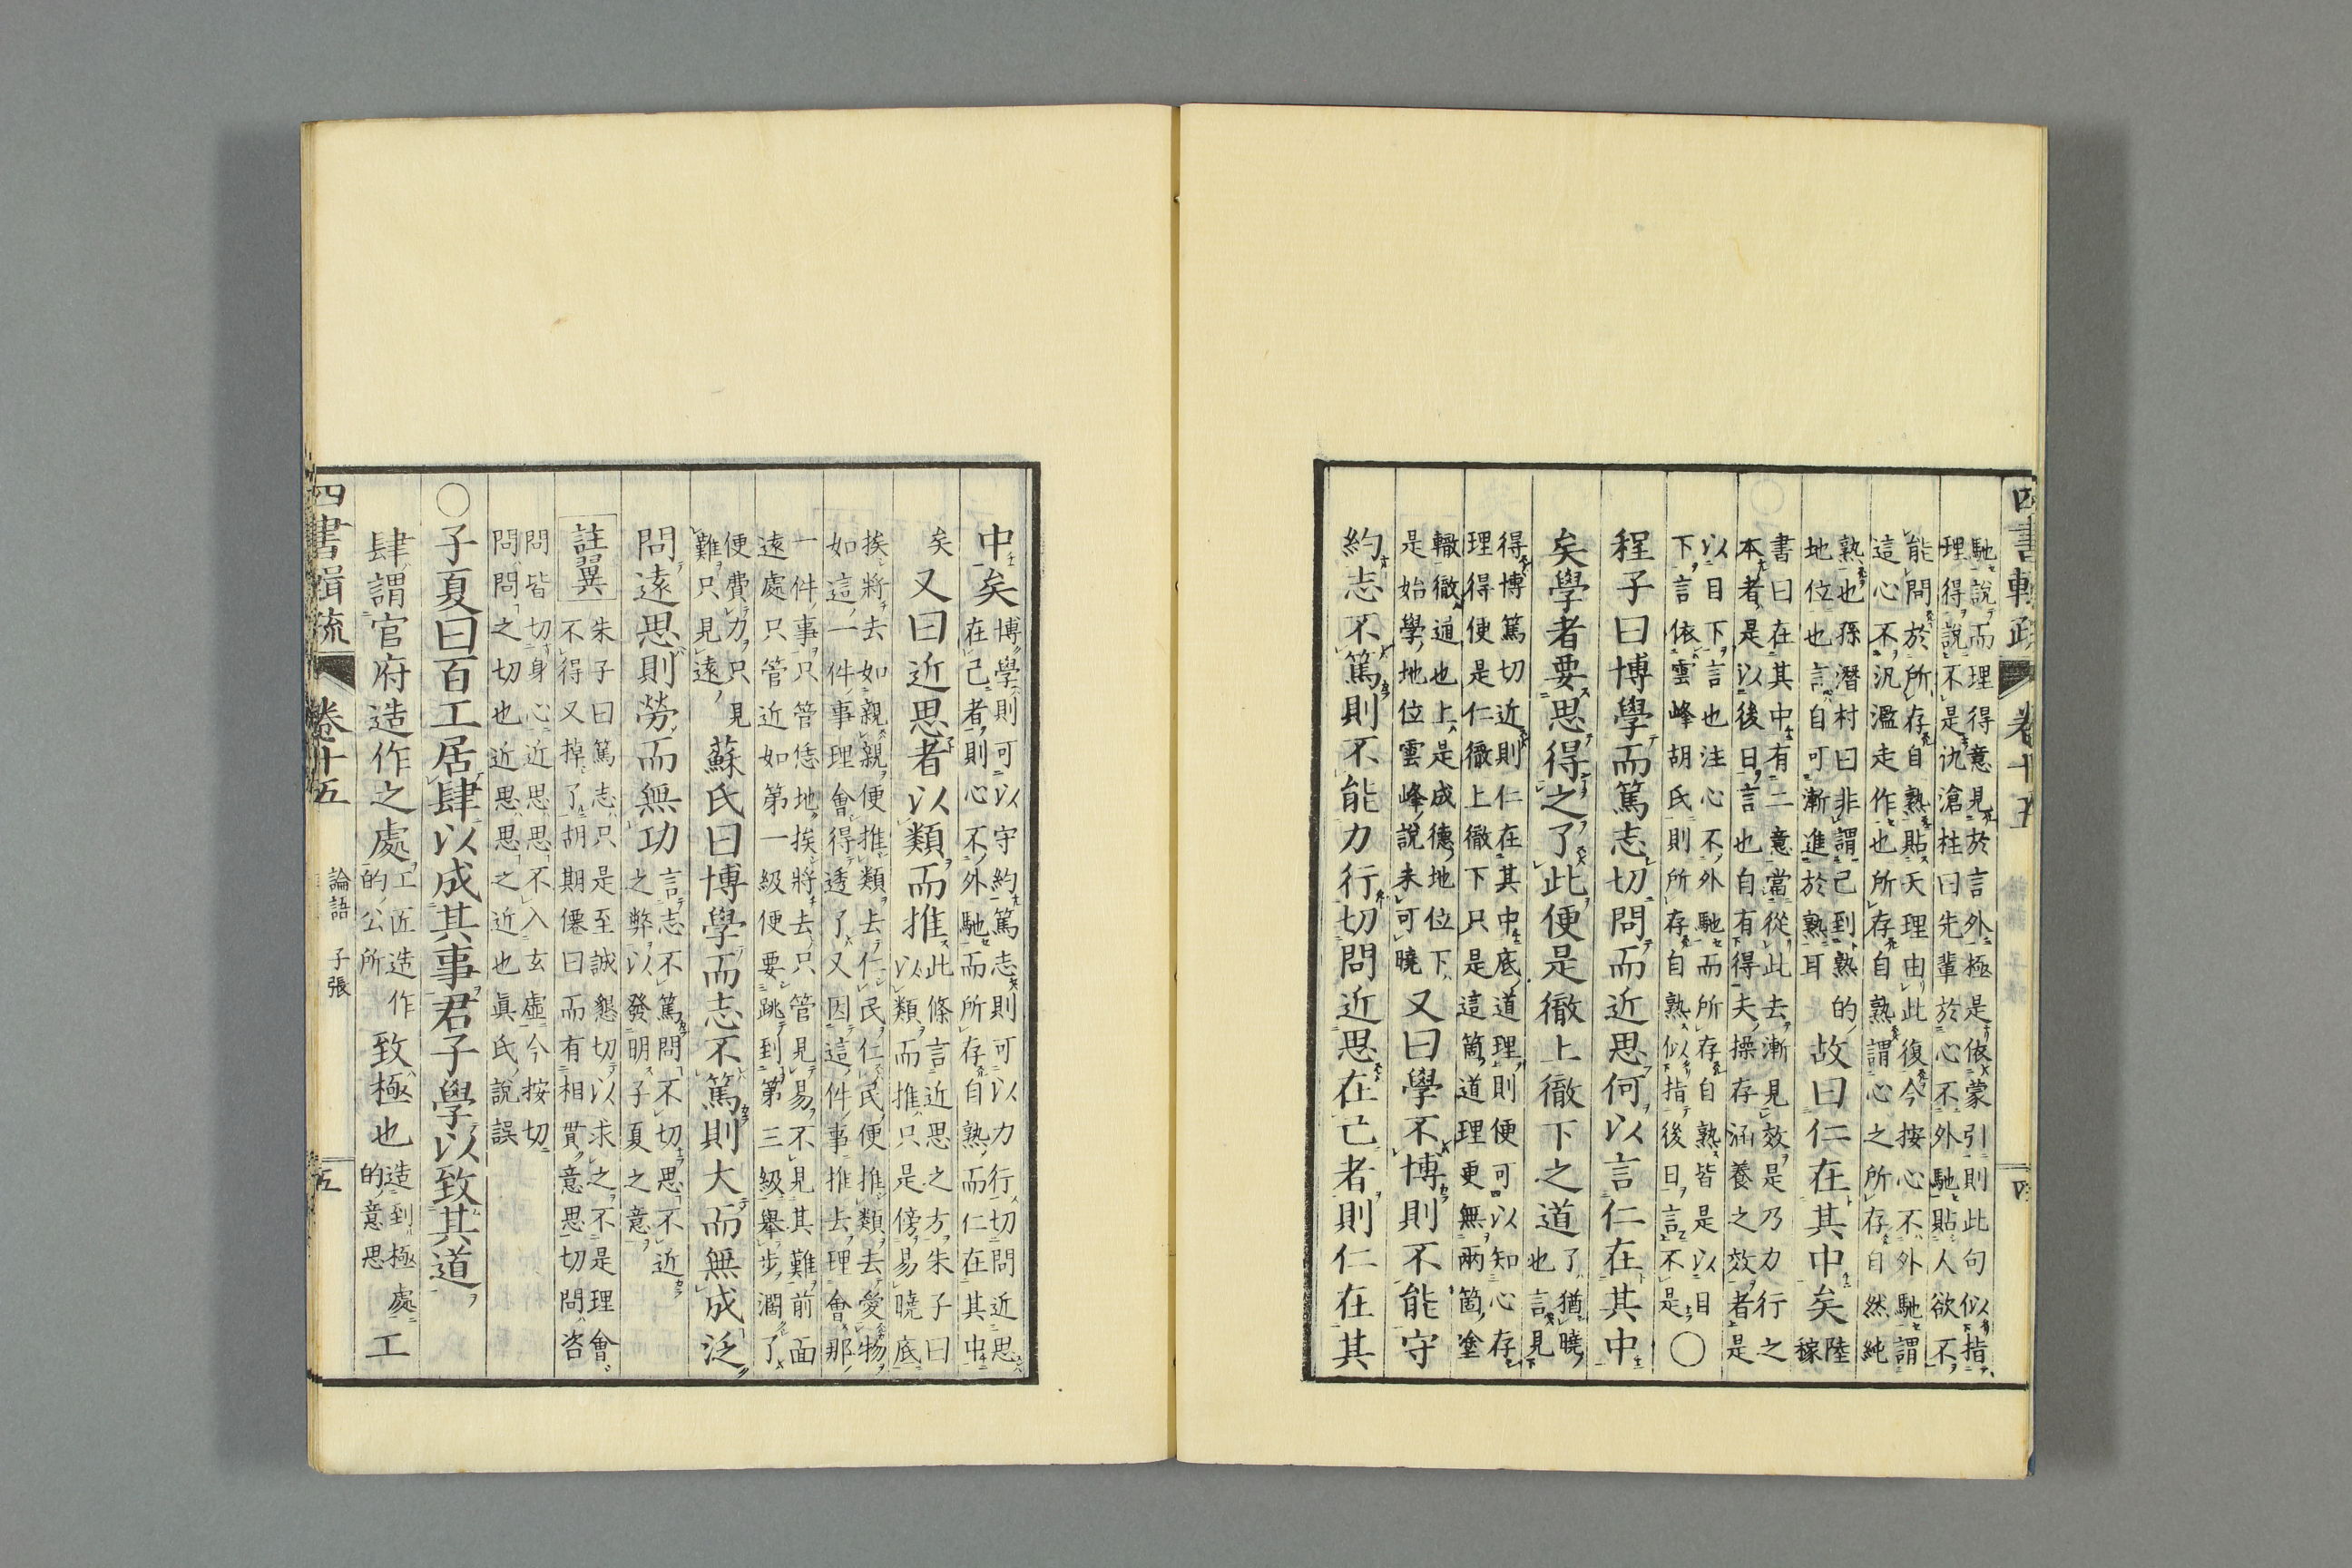 四書輯疏 卷十五 四
馳說而理得意見於言外極是依蒙引則此句似指
理得說不是氿滄柱曰先輩於心不外馳貼人欲不
能問於所存自熟貼天理由此復今按心不外馳謂
這心不汎濫走作也所存自熟謂心之所存自然純
熟也孫潛村曰非謂已到熟的
地位也言自可漸進於熟耳
故曰仁在其中矣
陸
稼
書曰在其中有二意當從此去漸見效是乃力行之
本者是以後日言也自有得夫操存涵養之效者是
以目下言也注心不外馳而所存自熟皆是以目
下言依雲峰胡氏則所存自熟似指後日言不是○
程子曰博學而篤志切問而近思何以言仁在其中
矣學者要思得之了此便是徹上徹下之道
了猶曉
也言見
得博篤切近則仁在其中底道理則便可以知心存
理得便是仁徹上徹下只是這箇道理更無兩箇塗
轍徹通也上是成德地位下
是始學地位雲峰說未可曉
又曰學不博則不能守
約志不篤則不能力行切問近思在己者則仁在其
中矣
博學則可以守約篤志則可以力行切問近思
在己者則心不外馳而所存自熟而仁在其中
矣
又曰近思者以類而推
此條言近思之方朱子曰
以類而推只是傍易曉底
挨將去如親親便推類去仁民仁民便推類去愛物
如這一件事理會得透了又因這件事推去理會那
一件事只管恁地挨將去只管見易不見其難前面
遠處只管近如第一級便要跳到第三級舉步濶了
便費力只見
難只見遠
蘇氏曰博學而志不篤則大而無成泛
問遠思則勞而無功
言志不篤問不切思不近
之弊以發明子夏之意
註翼
朱子曰篤志只是至誠懇切以求之不是理會
不得又掉了胡期僊曰而有相貫意思切問咨
問皆切身心近思思不入玄虛今按切
問問之切也近思思之近也眞氏說誤
○子夏曰百工居肆以成其事君子學以致其道
肆謂官府造作之處
工匠造作
的公所
致極也
造到極處
的意思
工
四書輯疏 卷十五 論語 子張 五